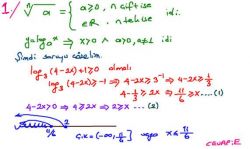 1./ ⁿ√a = { a≥0, n çift ise
a∈R, n tek ise idi.
y=log_a x ⇒ x>0 ∧ a>0, a≠1 idi
Şimdi soruyu çözelim.
log₃(4-2x)+1≥0 olmalı
log₃(4-2x)≥-1 ⇒ 4-2x≥3⁻¹ ⇒ 4-2x≥1/3
4-1/3≥2x ⇒ 11/6≥x....(1)
4-2x>0 ⇒ 4>2x ⇒ 2>x....(2)
11/6 2
Ç.K=(-∞, 11/6] veya x≤11/6
CEVAP:E